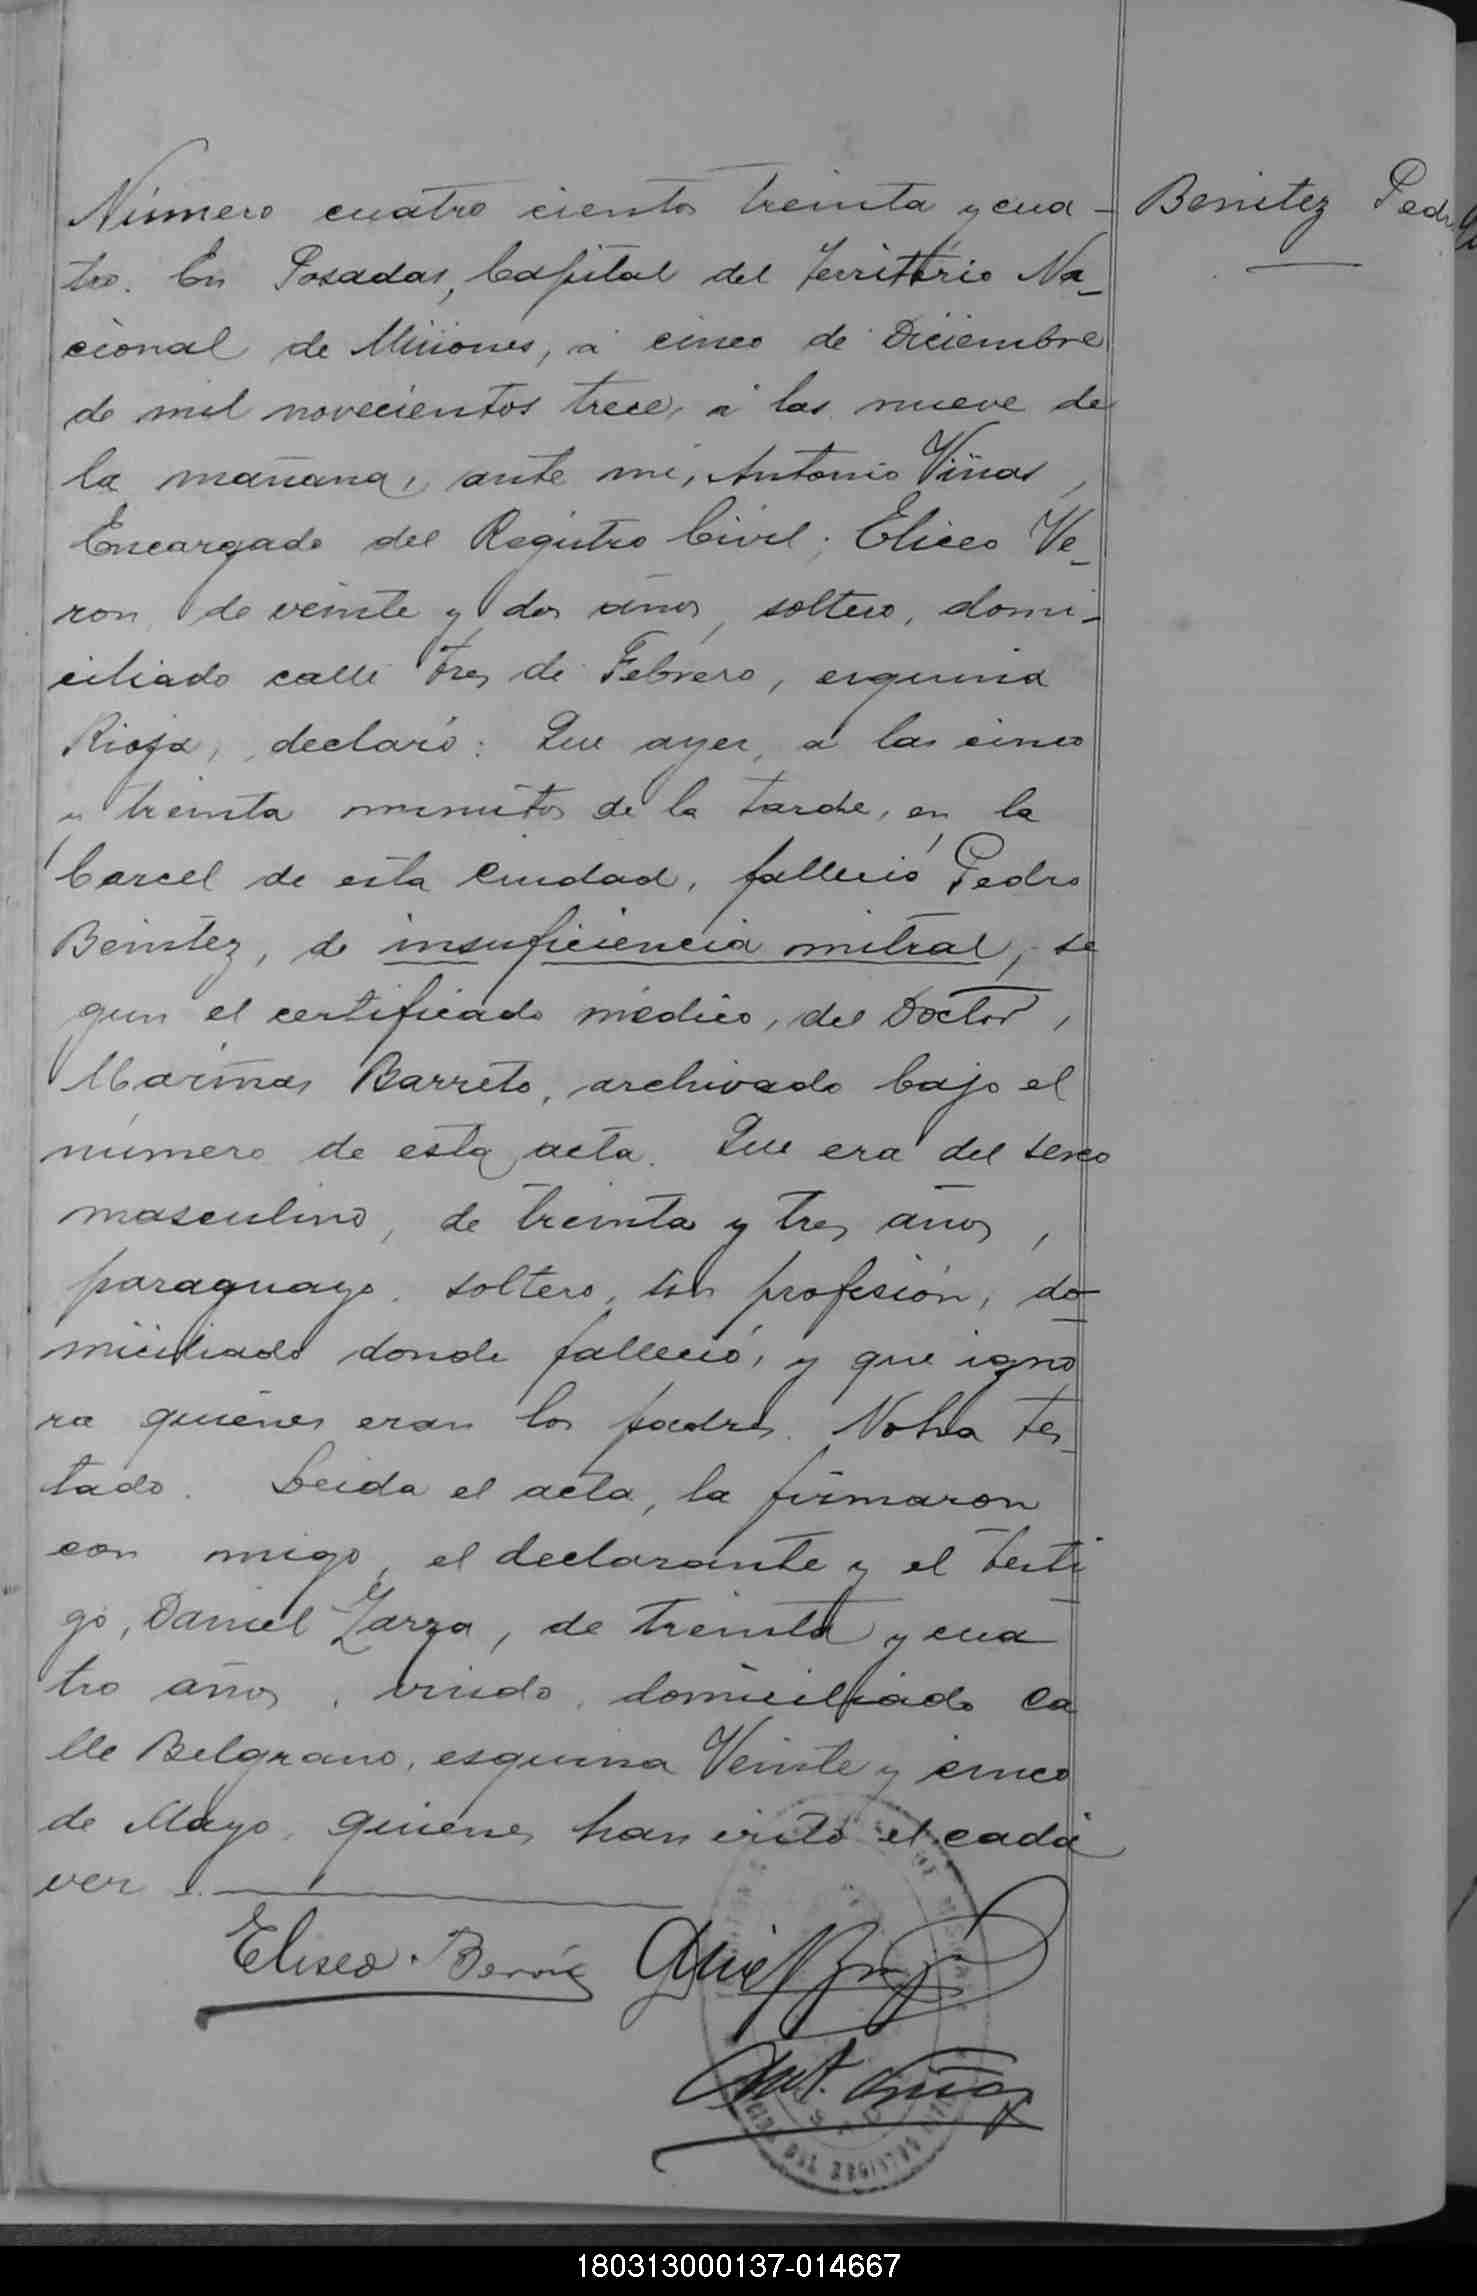 Número cuatro cientos treinta y cua-
Benitez Pedro
tro. En Posadas, Capital del Territorio Na-
cional de Misiones, á cinco de Diciembre
de mil novecientos trece, á las nueve de
la mañana, ante mi, Antonio Viñas,
Encargado del Registro Civil; Eliceo Ve-
ron, de veinte y dos años, soltero, domi-
ciliado calle Tres de Febrero, esquina
Rioja, declaró: Que ayer, á las cinco
y treinta minutos de la tarde, en la
Carcel de esta Ciudad, falleció Pedro
Benitez, de insuficiencia mitral, se
gun el certificado médico, del Doctor,
Mariñas Barreto, archivado bajo el
número de esta acta. Que era del sexo
masculino, de treinta y tres años,
paraguayo, soltero, sin profesión, do-
miciliado donde falleció, y que igno
ra quienes eran los padres. No ha tes-
tado. Leida el acta, la firmaron
con migo, el declarante y el testi
go, Daniel Zarza, de treinta y cua
tro años, viudo, domiciliado ca
lle Belgrano, esquina Veinte y cinco
de Mayo, quienes han visto el cadá
ver.
Eliseo Beron
Ant. Viñas
DEL REGISTRO CIVIL
180313000137-014667